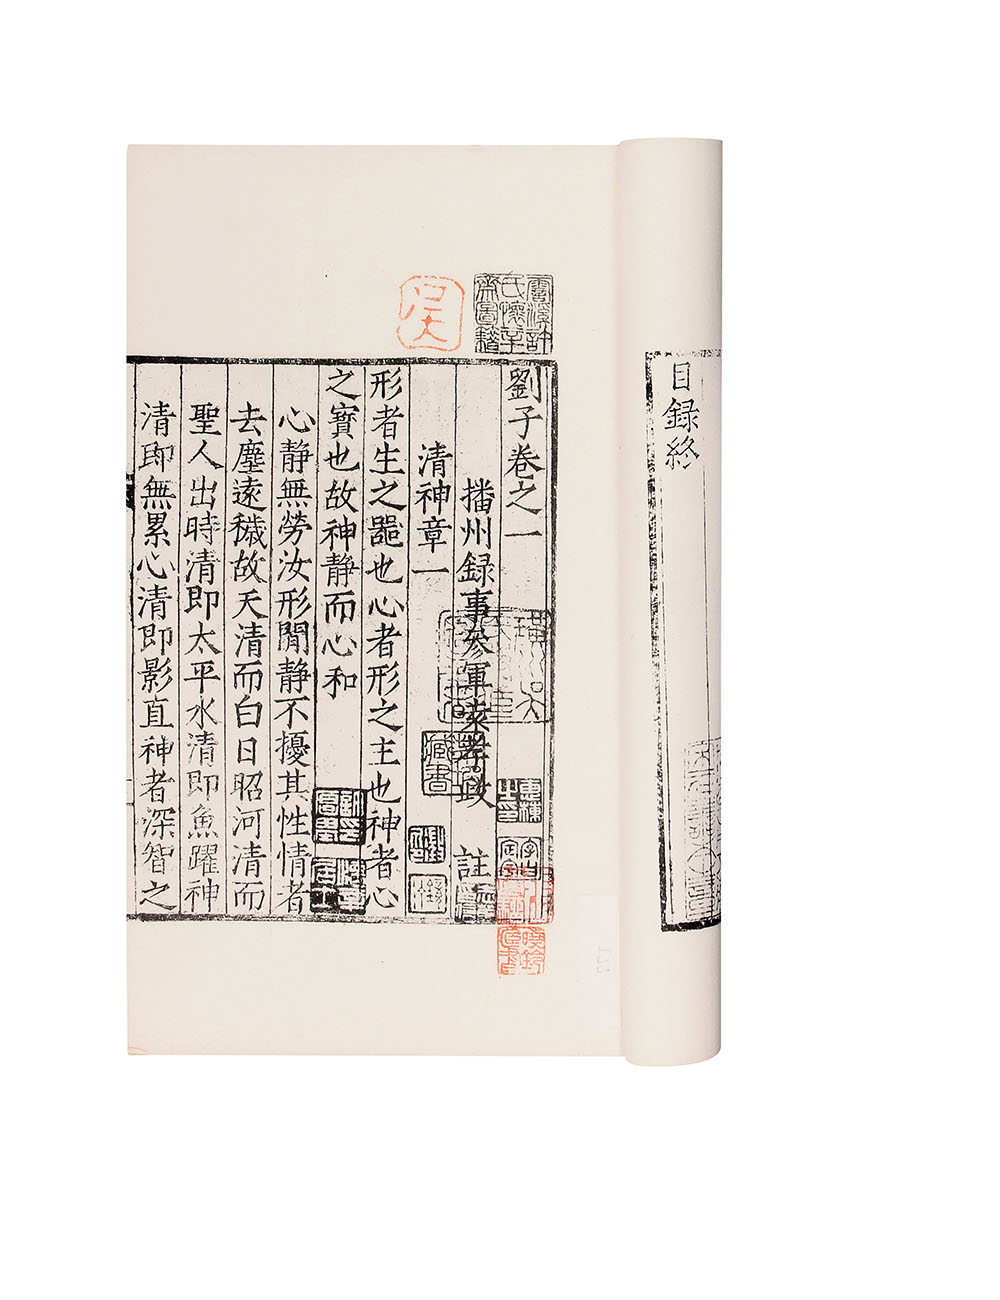 目録終
劉子卷之一
播州録事参軍袁孝政 註
清神章一
形者生之器也心者形之主也神者心
之寳也故神静而心和
心静無勞汝形閒静不擾其性情者
去塵逺穢故天清而白日昭河清而
聖人出時清即太平水清即魚躍神
清即無累心清即影直神者深智之
藏書